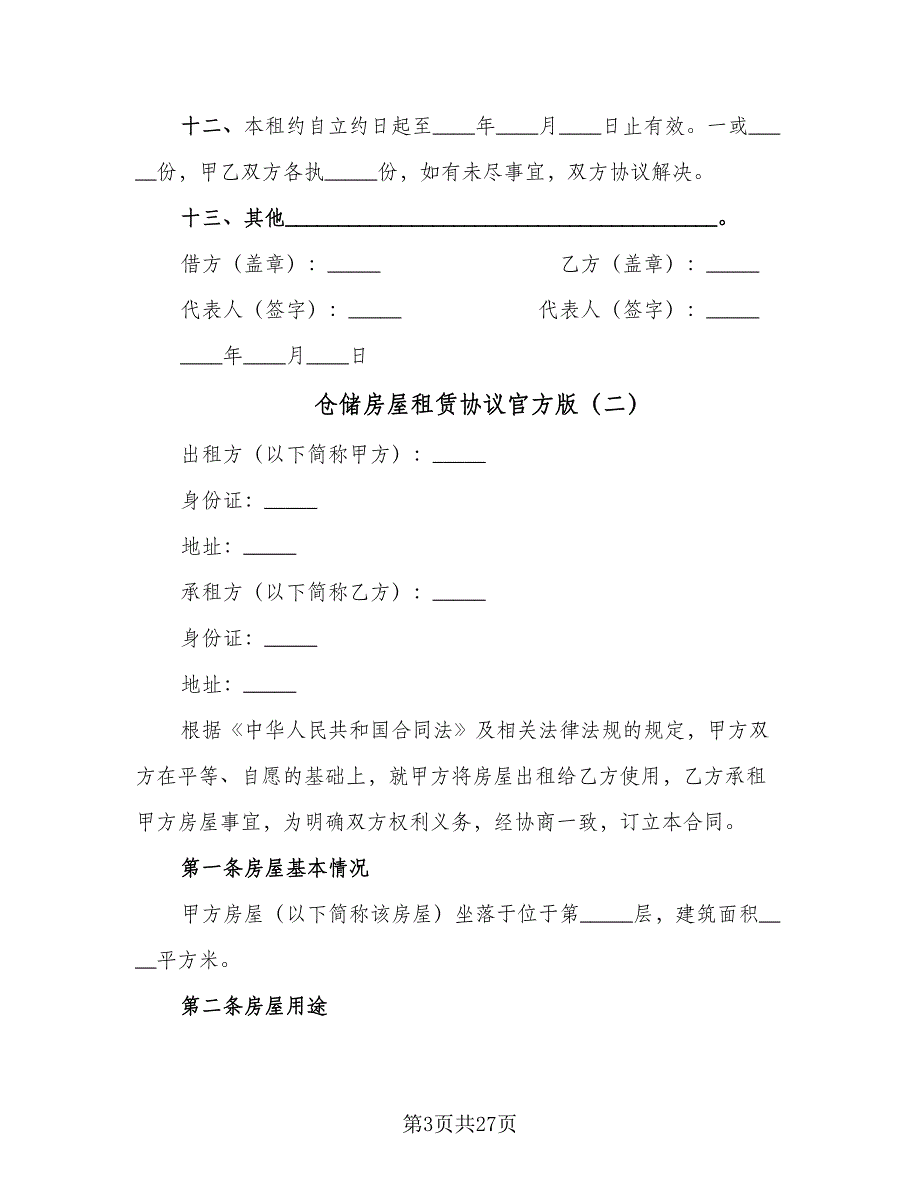 十二、本租约自立约日起至____年____月____日止有效。一或___
__份，甲乙双方各执_____份，如有未尽事宜，双方协议解决。
十三、其他_________________________________________。
借方（盖章）：_____ 乙方（盖章）：_____
代表人（签字）：_____ 代表人（签字）：_____
____年____月____日
仓储房屋租赁协议官方版（二）
出租方（以下简称甲方）：_____
身份证：_____
地址：_____
承租方（以下简称乙方）：_____
身份证：_____
地址：_____
根据《中华人民共和国合同法》及相关法律法规的规定，甲方双
方在平等、自愿的基础上，就甲方将房屋出租给乙方使用，乙方承租
甲方房屋事宜，为明确双方权利义务，经协商一致，订立本合同。
第一条房屋基本情况
甲方房屋（以下简称该房屋）坐落于位于第_____层，建筑面积__
__平方米。
第二条房屋用途
第3页共27页